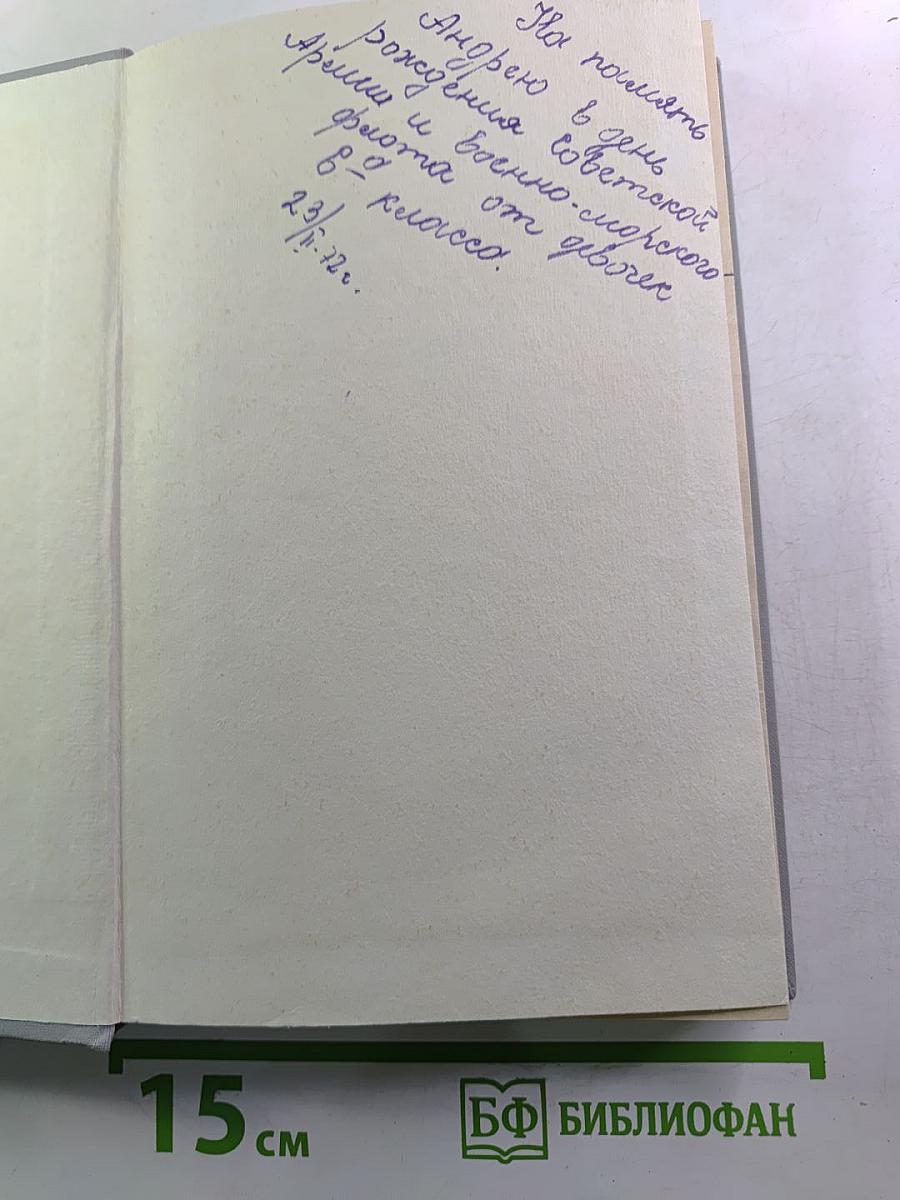 На память
Андрею в день
рождения Советской
Армии и Военно-морского
флота от девочек
6а класса.
23/II-72г.
15 см
БФ БИБЛИОФАН